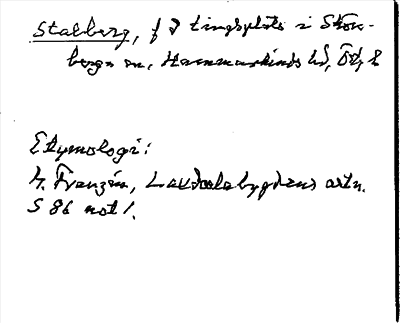 Stalberg, f d tingsplats i Skön-
berga sn, Hammarkinds hd, Ög
Etymologi:
G. Franzén, Laxdalabygdens ortn.
S 86 not 1.